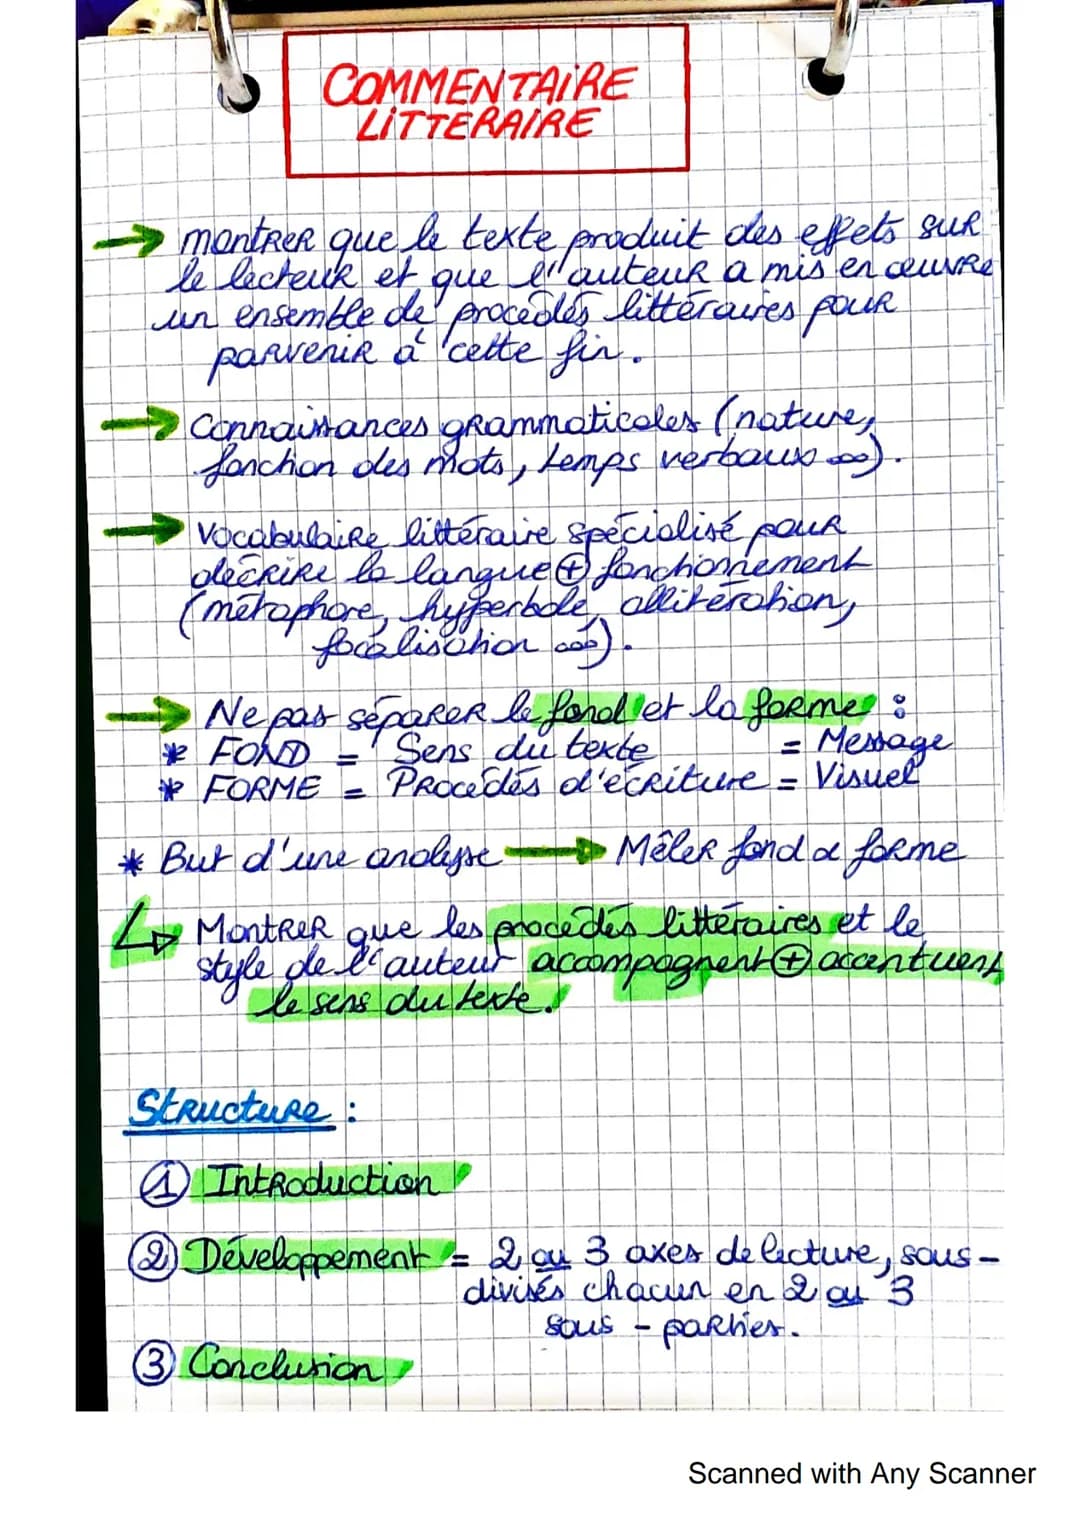 COMMENTAIRE
LITTERAIRE
→ montrer que le texte produit des effets sur
le lecteur et que l'auteur a mis en œuvre
un ensemble de procédés littéraires pour
parvenir à cette fin.
→ Connaissances grammaticales (nature,
fonction des mots, temps verbaux ...).
→ Vocabulaire littéraire spécialisé pour
décrire la langue ⊕ fonctionnement
(métaphore, hyperbole, allitération,
focalisation ...).
→ Ne pas séparer le fond et la forme :
* FOND = Sens du texte = Message
* FORME = Procédés d'écriture = Visuel
* But d'une analyse → Mêler fond & forme
↳ Montrer que les procédés littéraires et le
style de l'auteur accompagnent ⊕ accentuent
le sens du texte.
Structure :
① Introduction
② Développement = 2 ou 3 axes de lecture, sous-
divisés chacun en 2 ou 3
sous - parties.
③ Conclusion
Scanned with Any Scanner